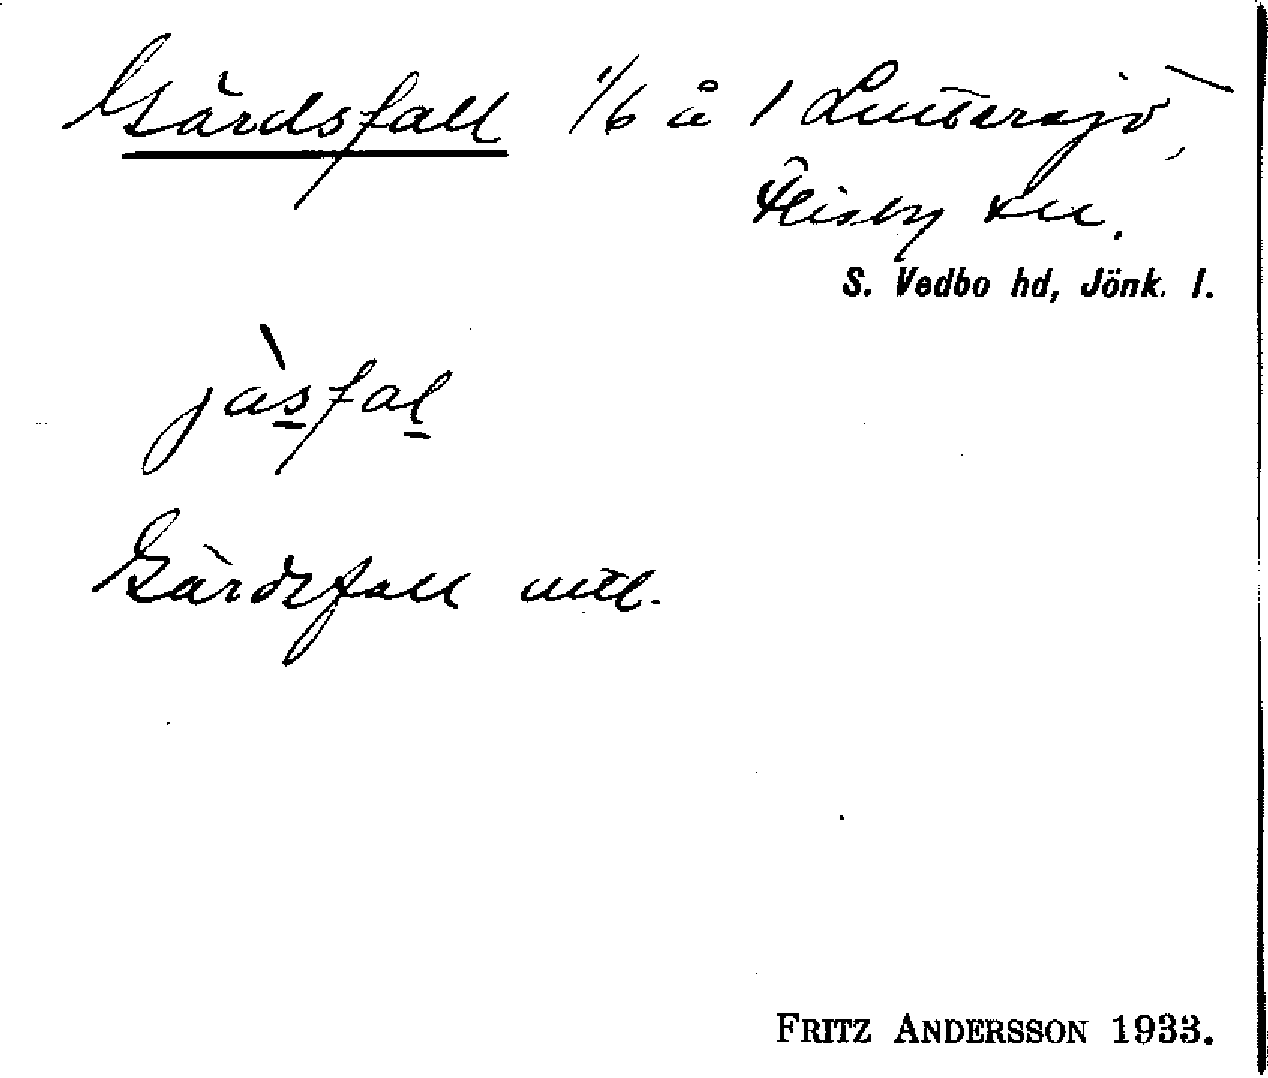 Gärdsfall 1/6 å 1 Luttersjö,
Flisby sn.
S. Vedbo hd, Jönk. l.
jàsfal
Gärdsfall uttl.
FRITZ ANDERSSON 1933.